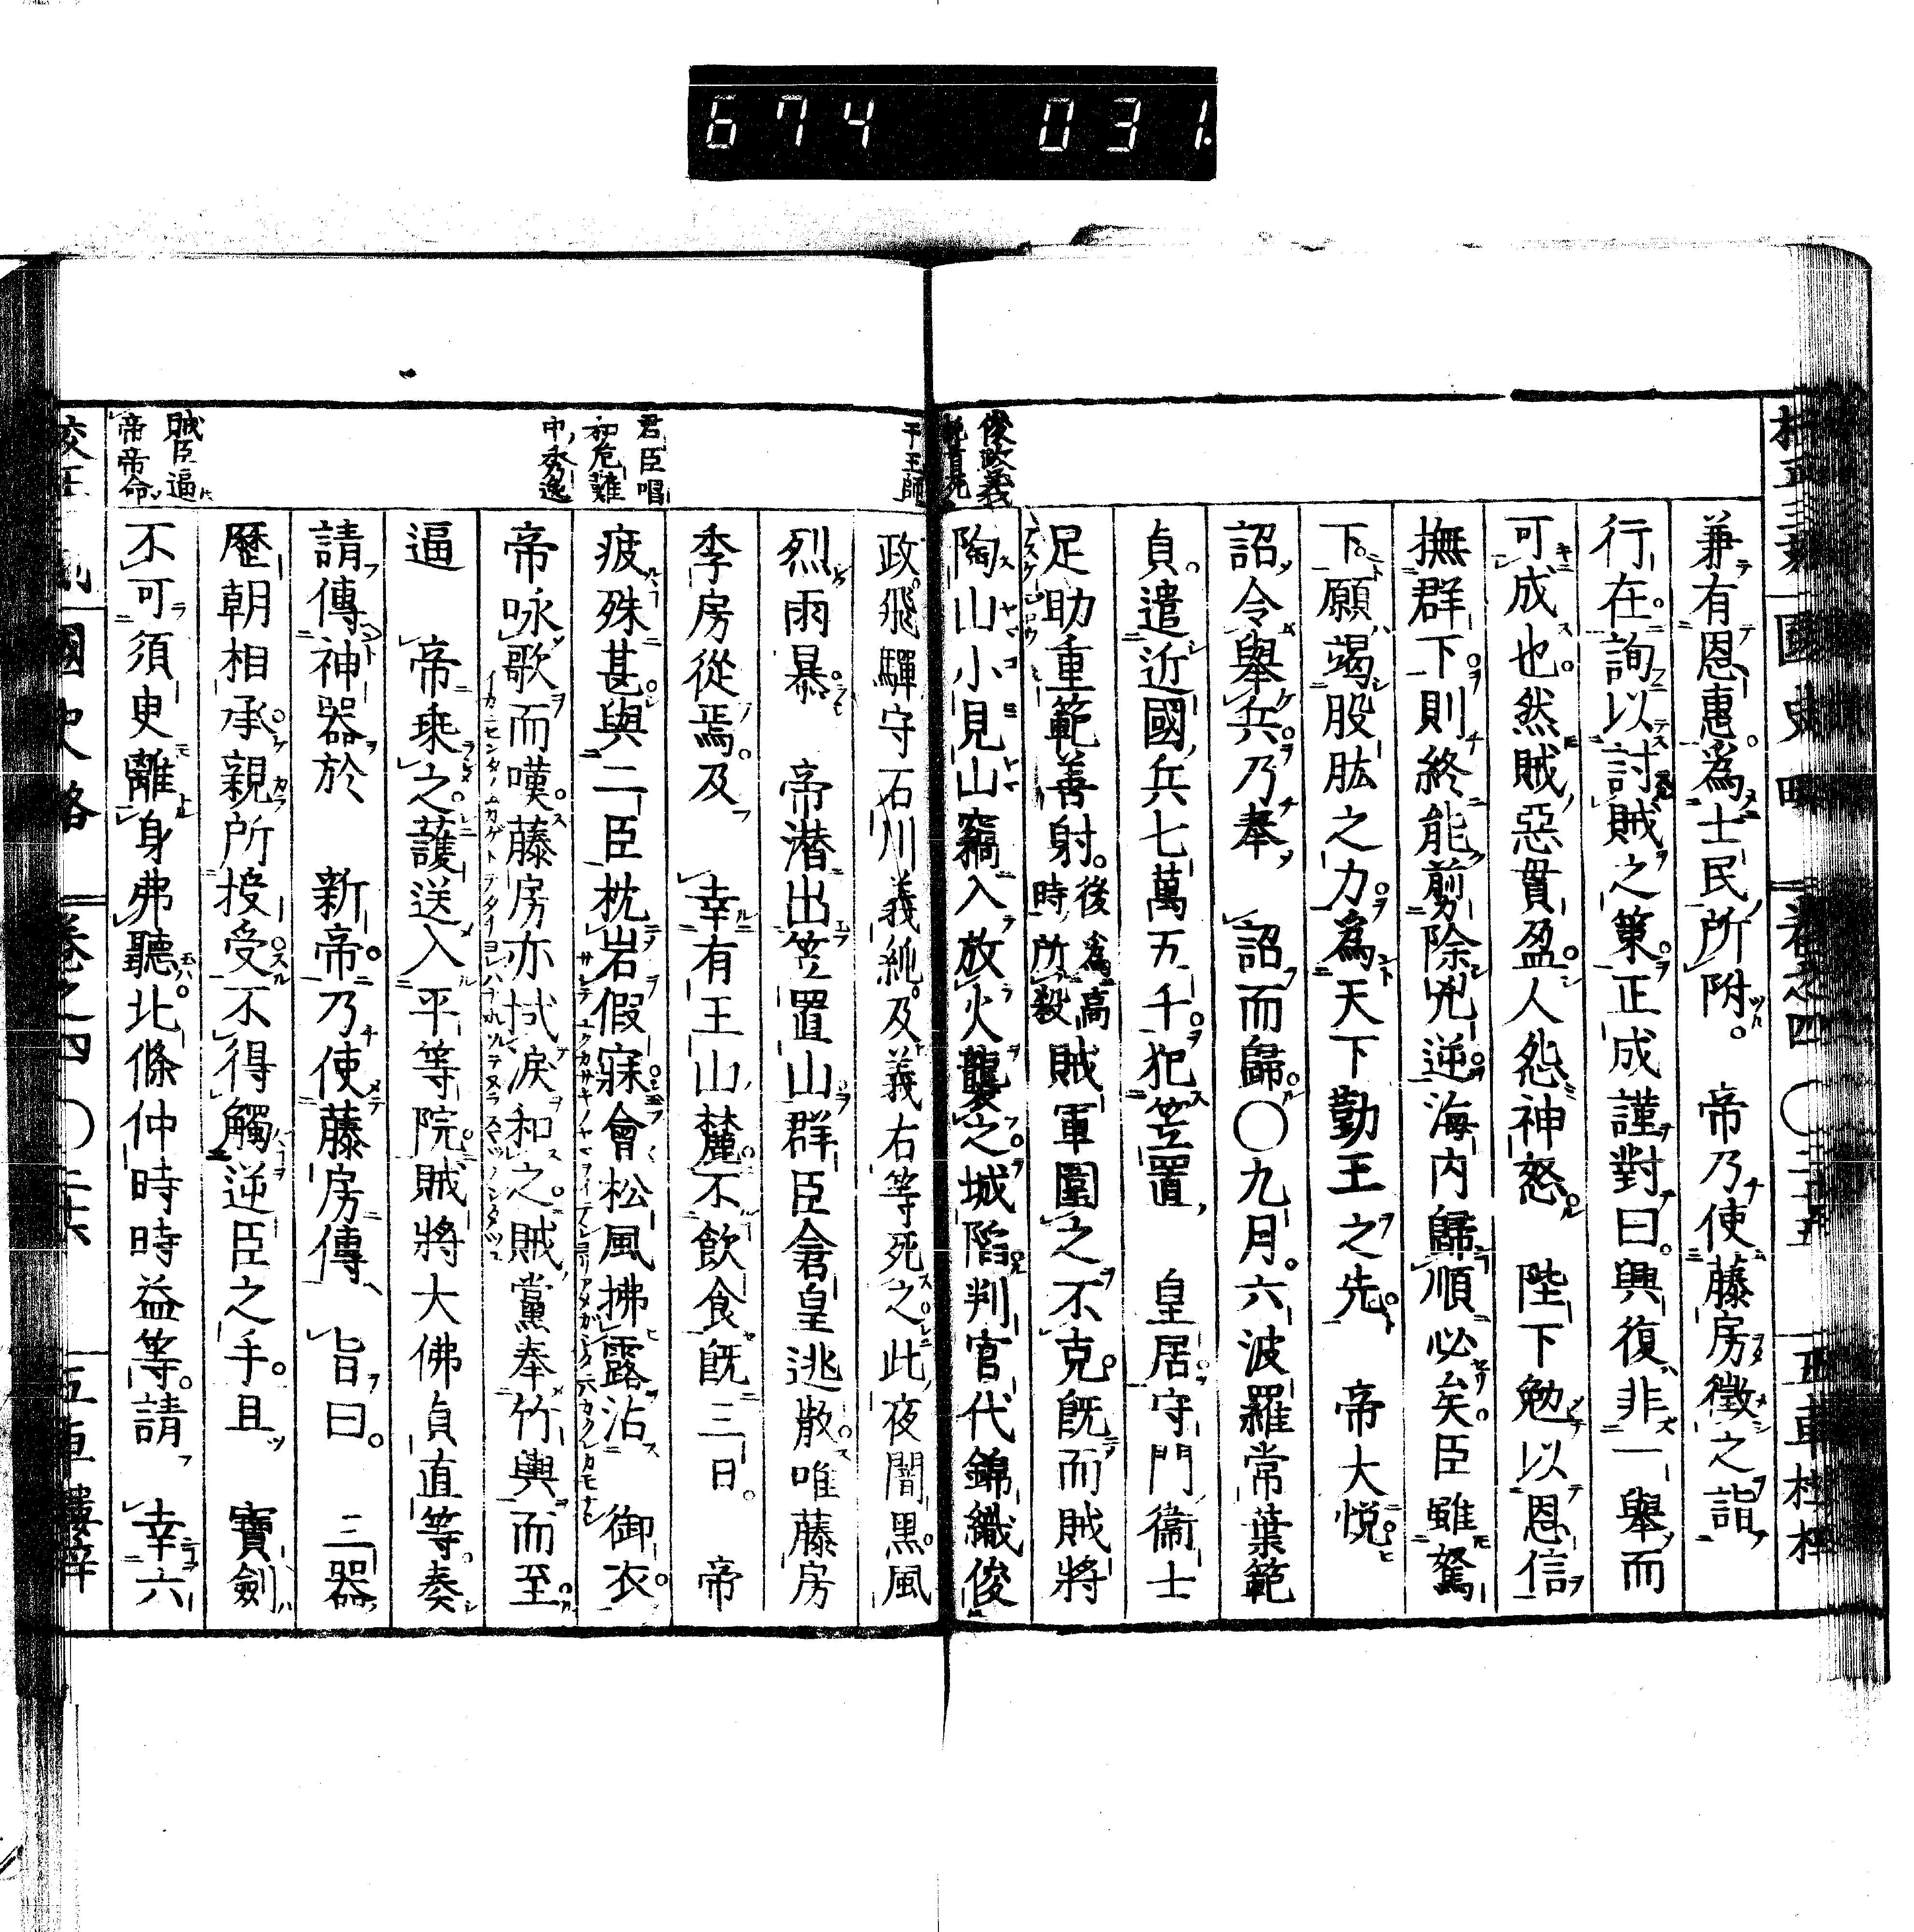 674 031.
兼有恩惠。爲士民所附。 帝乃使藤房徵之詣
行在。詢以討賊之策。正成謹對曰。興復非一舉而
可成也。然賊惡貫盈。人怨神怒。 陛下勉以恩信
撫群下。則終能剪除兇逆。海内歸順必矣。臣雖駑
下。願竭股肱之力。爲天下勤王之先。 帝大悦
詔令舉兵。乃奉 詔而歸。〇九月。六波羅常葉範
貞。遣近國兵七萬五千。犯笠置 皇居。守門衞士
足助重範善射。後爲高時所殺賊軍圍之不克。既而賊將
陶山小見山竊入放火襲之。城陷。判官代錦織俊
政。飛驒守石川義純。及義右等死之。此夜闇黒。風
烈雨暴。 帝潜出笠置山。群臣倉皇逃散。唯藤房
季房從焉。及 幸有王山麓。不飲食既三日。 帝
疲殊甚。與二臣枕岩假寐。會松風拂露沾 御衣。
帝咏歌而嘆。藤房亦拭淚和之。賊黨奉竹輿而至。
逼 帝乗之。護送入平等院。賊將大佛貞直等。奏
請傳神器於 新帝。乃使藤房傳 旨曰。 三器
歷朝相承。親所授受。不得觸逆臣之手。且 寶劍
不可須臾離身。弗聽。北條仲時時益等。請 幸六
俊政義
君臣唱
和危難
中秀逸
賊臣逼
帝帝命
國史略
卷之四